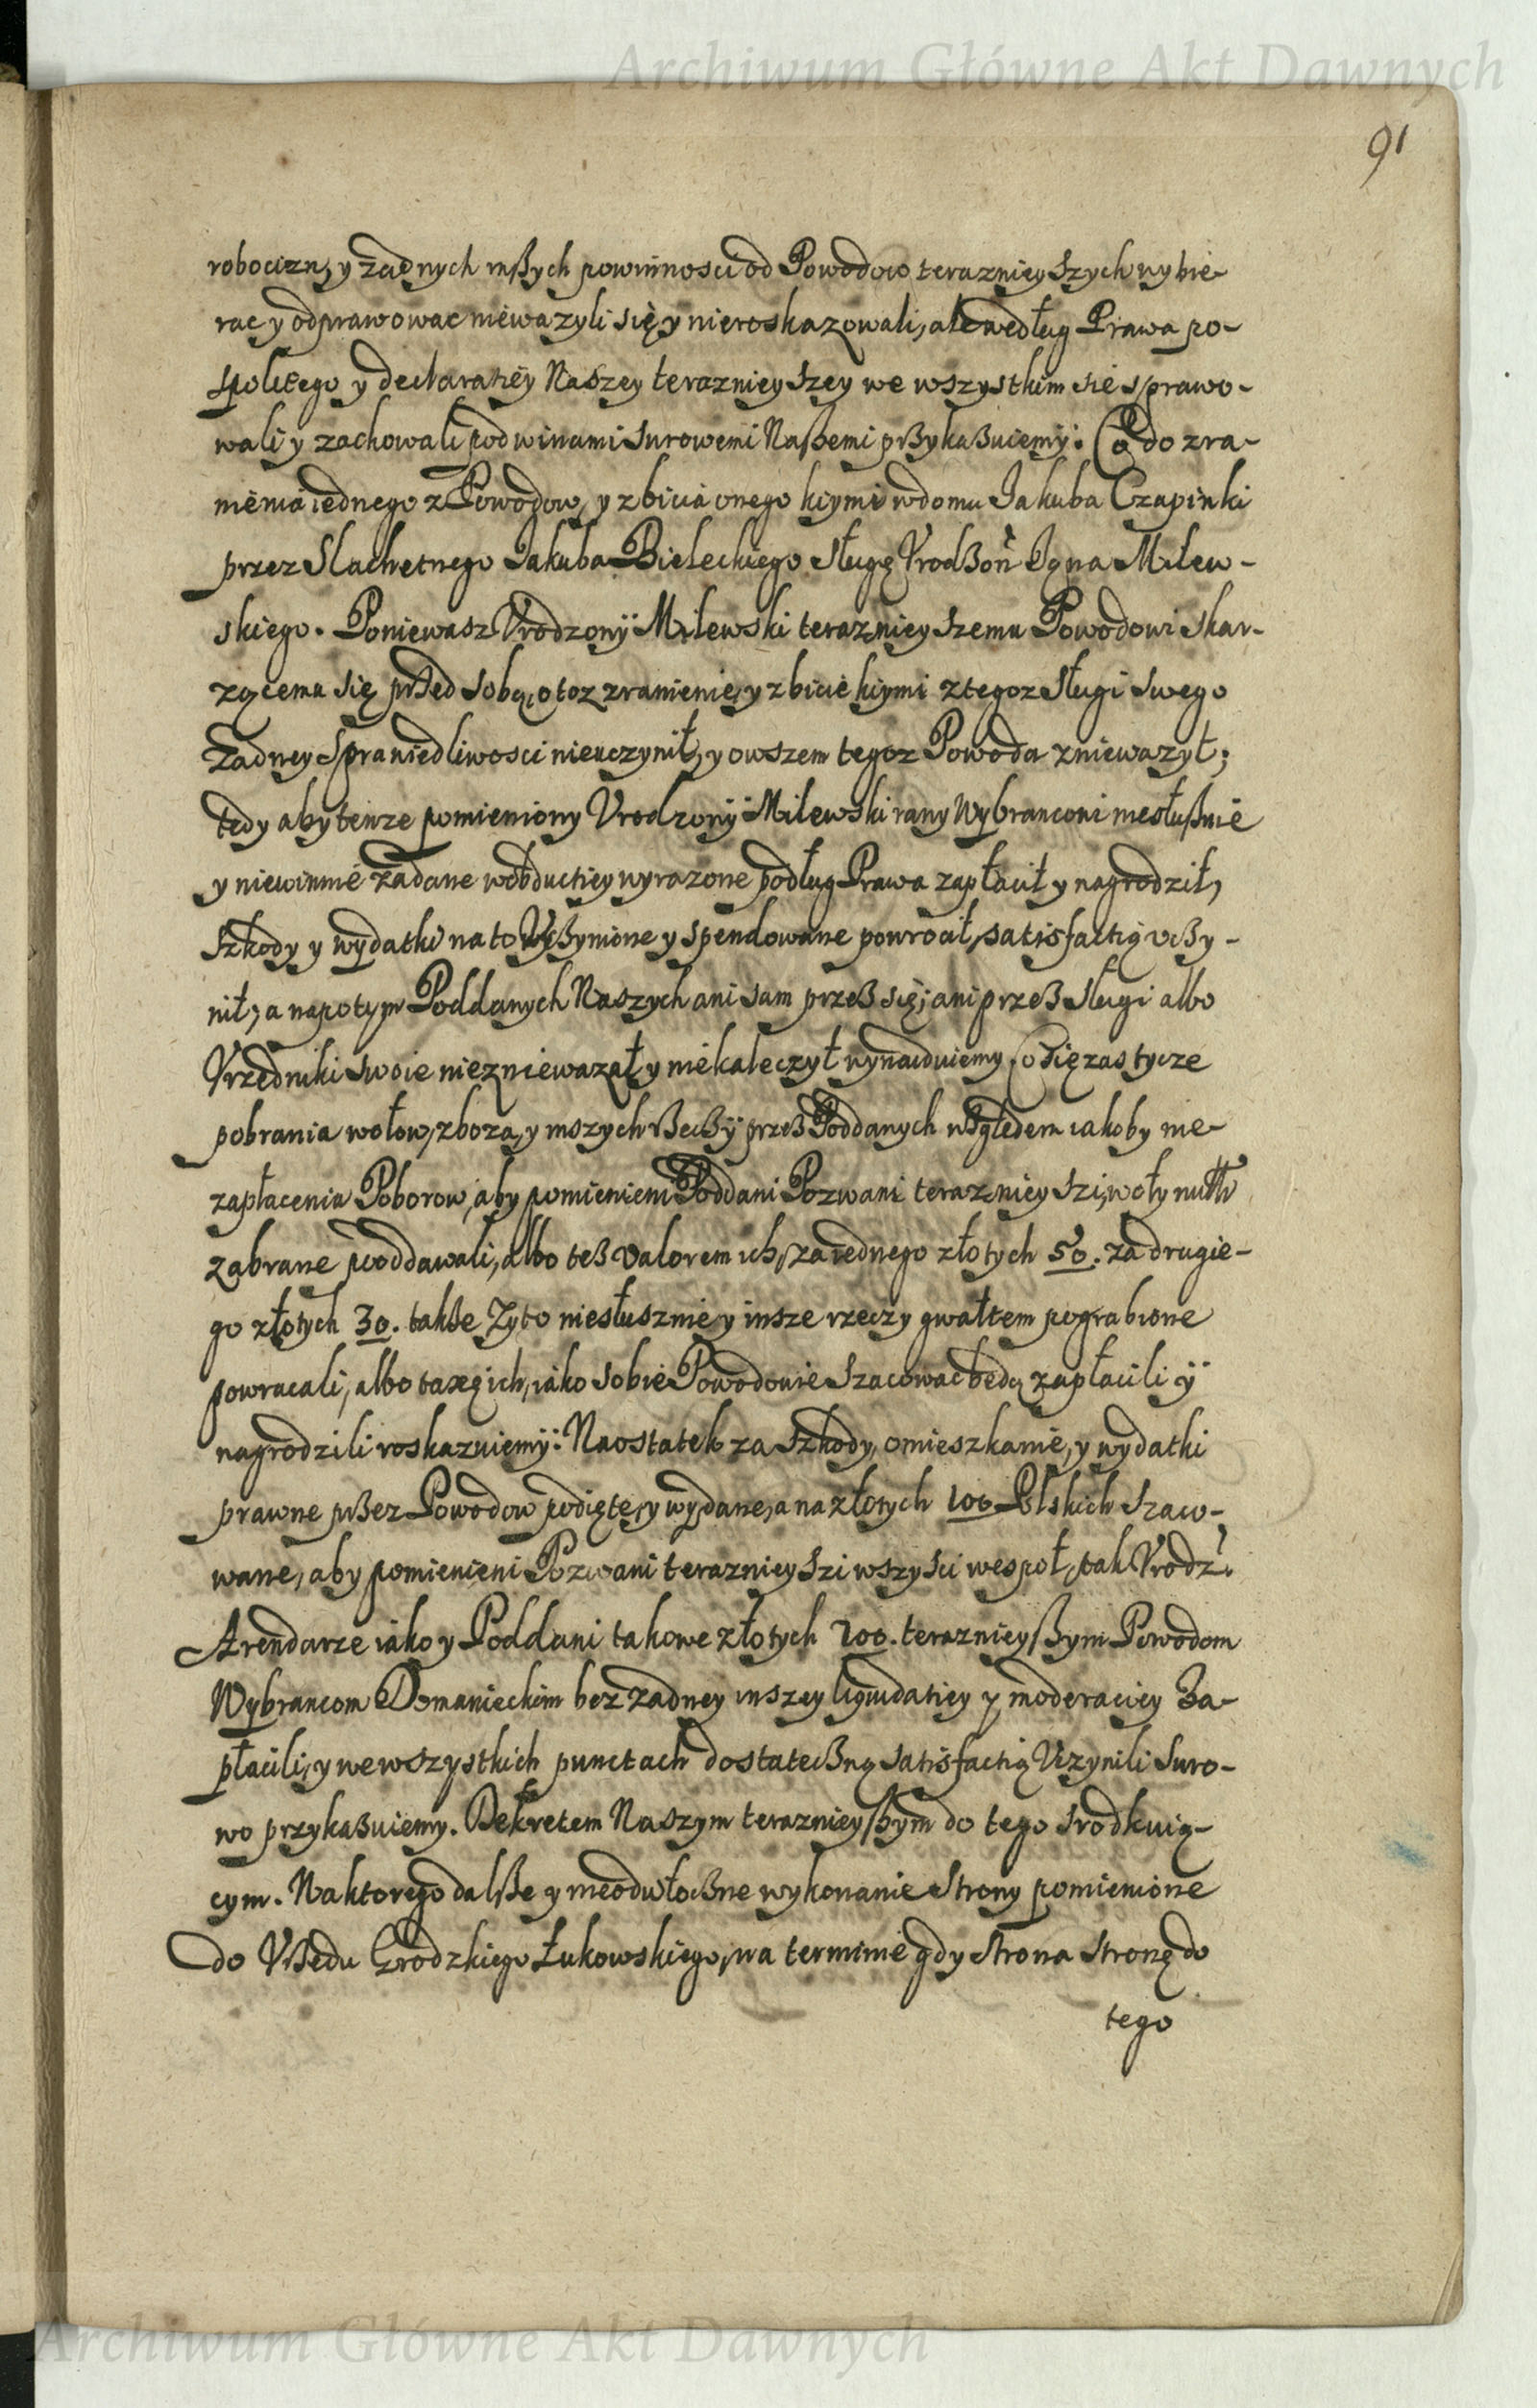 Archiwum Główne Akt Dawnych
91
robocizn, y żadnych inßych powinnosci od Powodow teraznieyszych wybie-
rac y odprawowac nieważyli się y nieroskazowali, ale według Prawa po-
spolitego y declaratiey Naszey teraznieyszey we wszystkim sie sprawo-
wali y zachowali pod winami surowemi Naßemi prßykaßuiemy: Co do zra-
nienia iednego z Powodow, y zbicia onego kiymi wdomu Jakuba Czapinki
przez Slachetnego Jakuba Bieleckiego sługę Vrodßon Jgna Milew-
skiego. Poniewasz Vrodzony Milewski teraznieyszemu Powodowi skar-
zącemu się prßed sobą, o toz zranienie, y zbicie kiymi z tegoz sługi swego
żadney sprawiedliwosci nieuczynił, y owszem tegoz Powoda zniewazył;
tedy aby tenze pomieniony Vrodzony Milewski rany Wybrancowi niesłußnie
y niewinnie zadane wobductiey wyrazone podług Prawa zapłacił y nagrodził,
szkody y wydatki na to Vcßynione y spendowane powrocił, satisfactią vcßy-
nił, a napotym Poddanych Naszych ani sam przeß się, ani przeß sługi albo
Vrzedniki swoie nieznieważał y niekaleczył wynaiduiemy. Co się zas tycze
pobrania wołow, zboza, y inszych Rzecßy przeß Poddanych wßględem iakoby nie-
zapłacenia Poborow, aby pomienieni Poddani Pozwani teraznieyszi, woły
zabrane pooddawali, albo teß valorem ich, za iednego złotych 50. za drugie-
go złotych 30. takße Zyto niesłusznie y insze rzeczy gwałtem pograbione
powracali, albo taxę ich, iako sobie Powodowie szacować będą zapłacili y
nagrodzili roskazuiemy: Naostatek za szkody, omieszkanie, y wydatki
prawne prßez Powodow podięte, y wydane, a na złotych 100 Polskich szaco-
wane, aby pomienieni Pozwani teraznieyszi wszysci wespoł, tak Vrodz.
Arendarze iako y Poddani takowe złotych 100. teraznieyßym Powodom
Wybrancom Domanieckim bez żadney inszey liquidatiey y moderaciey za-
płacili, y we wszystkich punctach dostatecßną satisfactią Vczynili suro-
wo przykaßuiemy. Dekretem Naszym teraznieyßym do tego srodkuią-
cym. Na ktorego dalße y nieodwłocßne wykonanie strony pomienione
do Vrßedu Grodzkiego Łukowskiego, na terminie gdy strona stronę do
tego
Archiwum Główne Akt Dawnych